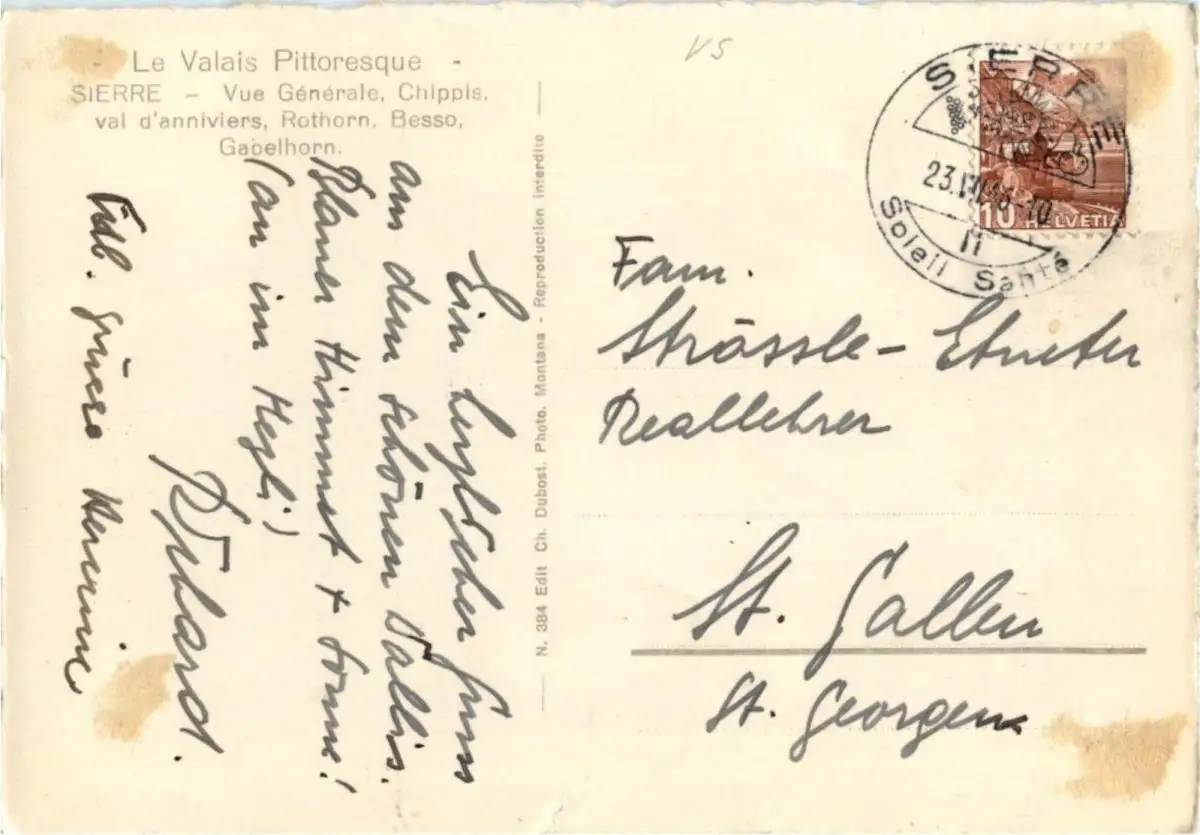 - Le Valais Pittoresque -
SIERRE - Vue Générale, Chippis,
val d'anniviers, Rothorn, Besso,
Gabelhorn.
VS
SIERRE
23.
-10
Soleil Santé
10 HELVETIA
Ein herzlicher Gruss
aus dem schönen Wallis.
Blauer Himmel + Sonne!
(au im Hegli!)
Edb. grüsse Hermine
N. 384 Edit Ch. Dubost, Photo. Montana - Reproduction interdite
Fam.
Strässle - Etneter
Reallehrer
St. Gallen
St. Georgen